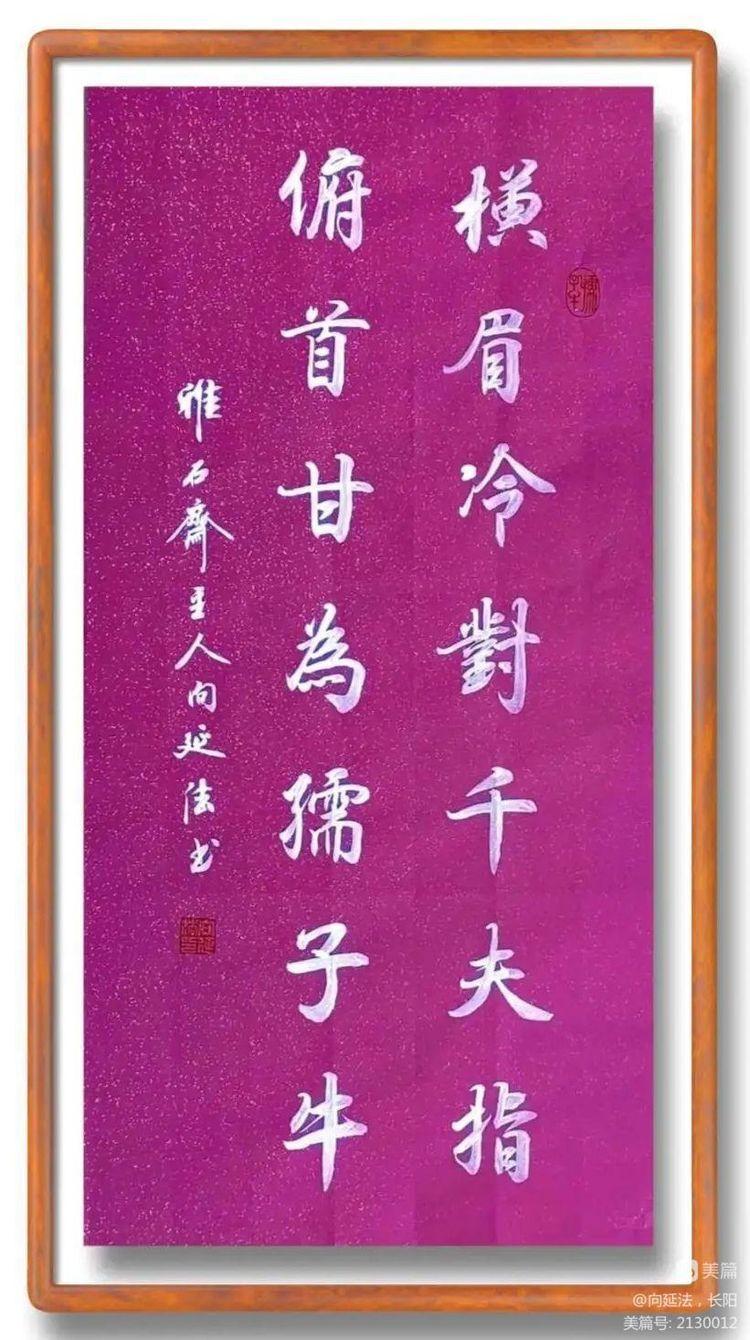 橫眉冷對千夫指
俯首甘為孺子牛
雅石齋主人向延法书
孺子牛
向延法印
美篇
@向延法，长阳
美篇号: 2130012